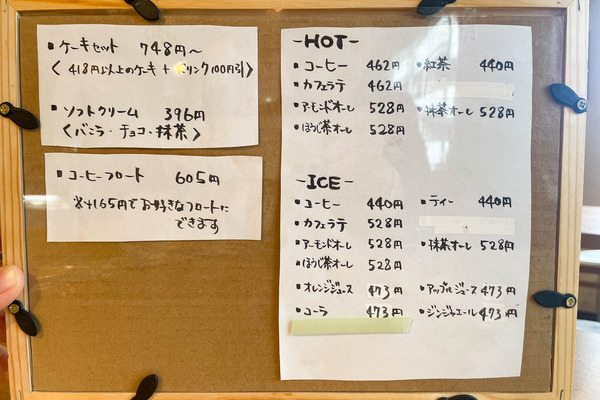 ▪ケーキセット 748円〜
〈 418円以上のケーキ + ドリンク100円引〉
▪ソフトクリーム 396円
〈バニラ・チョコ・抹茶〉
▪コーヒーフロート 605円
※+165円でお好きなフロートに
できます
-HOT-
▪コーヒー 462円 ▪紅茶 440円
▪カフェラテ 462円
▪アーモンドオーレ 528円 ▪抹茶オーレ 528円
▪ほうじ茶オーレ 528円
-ICE-
▪コーヒー 440円 ▪ティー 440円
▪カフェラテ 528円
▪アーモンドオーレ 528円 ▪抹茶オーレ 528円
▪ほうじ茶オーレ 528円
▪オレンジジュース 473円 ▪アップルジュース 473円
▪コーラ 473円 ▪ジンジャエール 473円